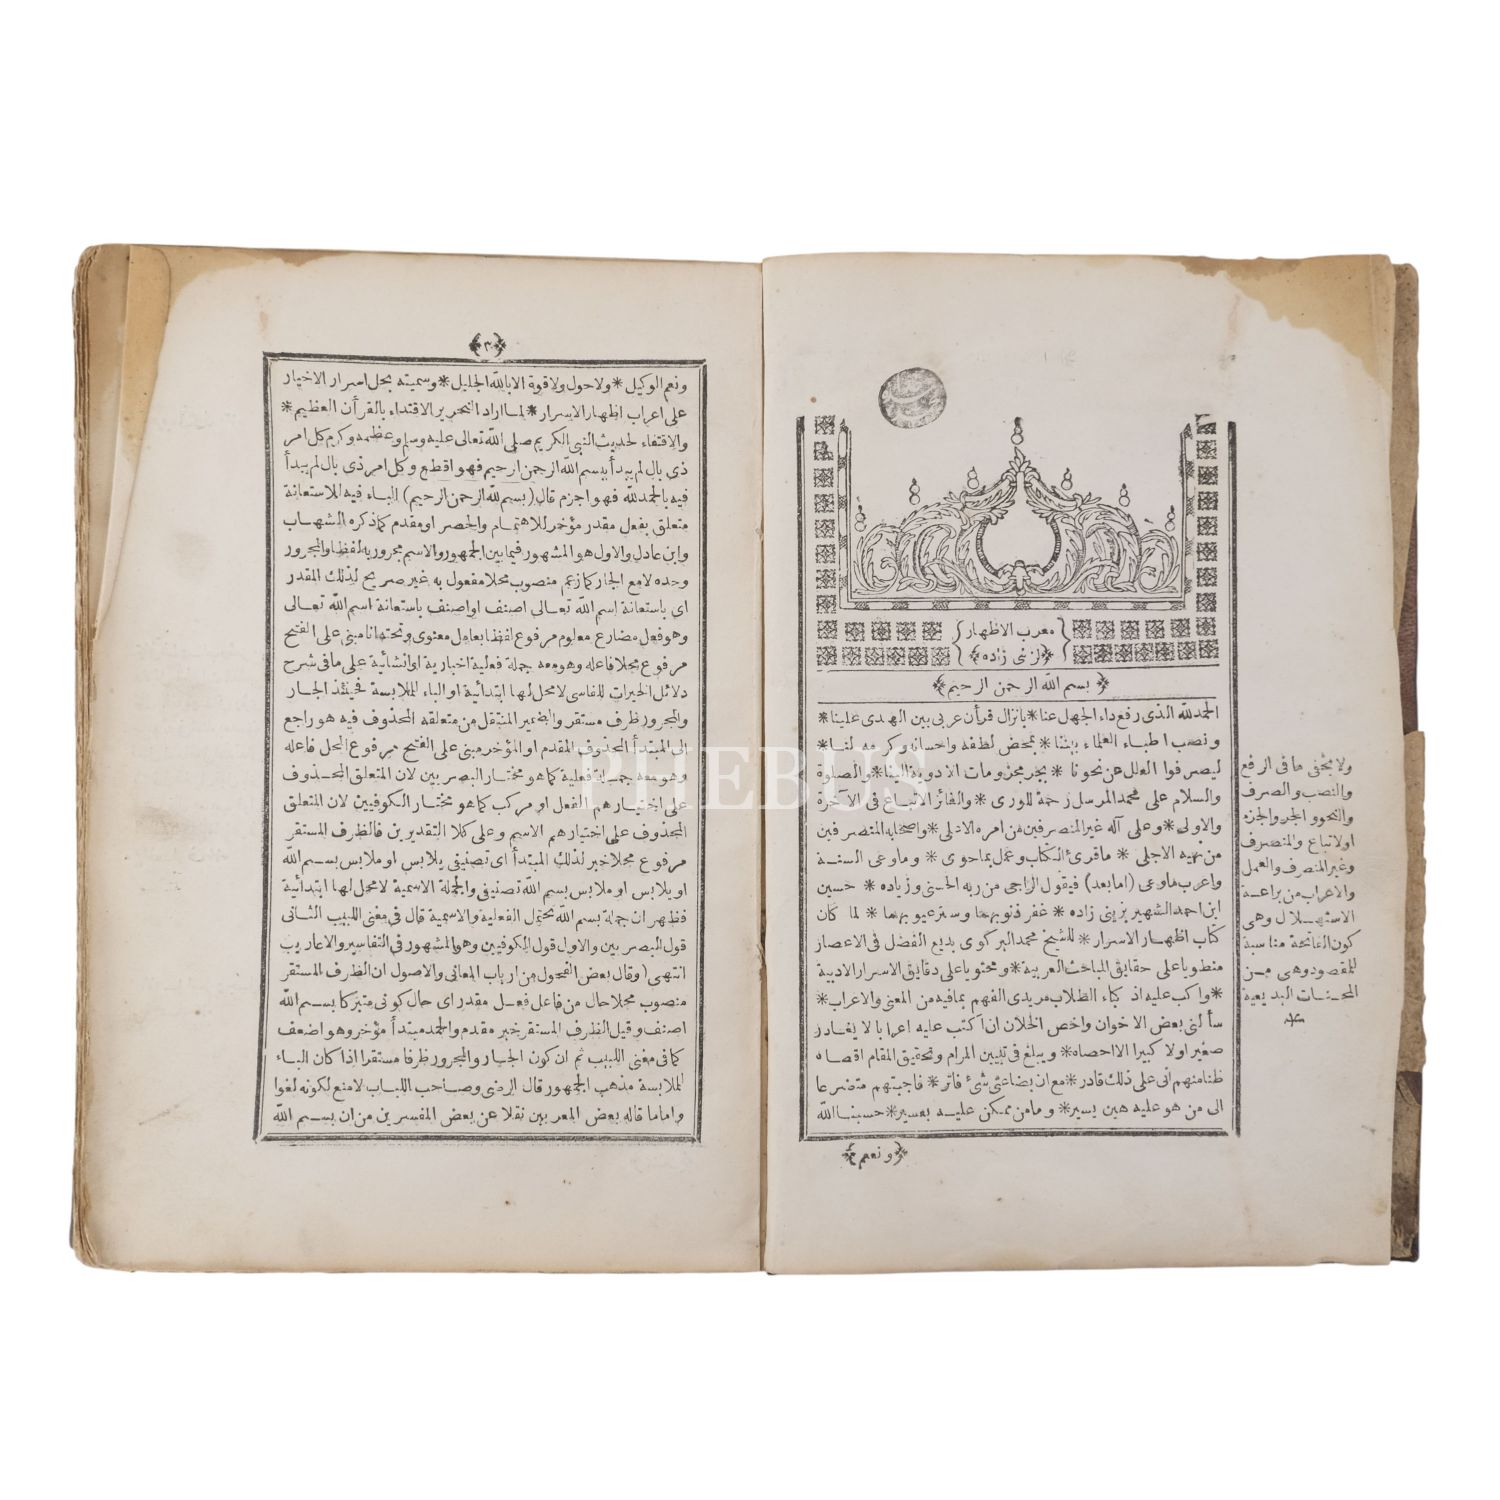 معرب الاظهار
لزينى زاده
بسم الله الرحمن الرحيم
الحمد لله الذى رفع داء الجهل عنا * بانزال قرأن عربى بين الهدى علينا *
ونصب اطباء العلماء بيننا * بمحض لطفه واحسانه وكرمه لنا *
ليصرفوا العلل عن نحونا * بجر مجزومات الادوية الينا * والصلوة
والسلام على محمد المرسل رحمة للورى * والفائز الاتباع فى الآخرة
والاولى * وعلى آله غير المنصرفين من امره الادلى * واصحابه المنصرفين
من نهيه الاجلى * ماقرئ الكتاب وعمل بماحوى * وماوعى السنة
واعرب ماوعى (امابعد) فيقول الراجى من ربه الحسنى وزياده * حسين
ابن احمد الشهير بزينى زاده * غفر ذنوبهما وستر عيوبهما * لما كان
كتاب اظهار الاسرار * للشيخ محمد البركوى بديع الفضل فى الاعصار
منطويا على حقايق المباحث العربية * ومحتويا على دقايق الاسرار الادبية
* واكب عليه اذكياء الطلاب مريدى الفهم بمافيه من المعنى والاعراب *
سألنى بعض الاخوان واخص الخلان ان اكتب عليه اعرابا لا يغادر
صغيرا ولا كبيرا الا احصاه * ويبلغ فى تبيين المرام وتحقيق المقام اقصاه
ظنا منهم انى على ذلك قادر * مع ان بضاعتى شئ فاتر * فاجبتهم متضرعا
الى من هو عليه هين يسير * ومامن ممكن عليه بعسير * حسبنا الله
ونعم
ولا يخفى مافى الرفع
والنصب والصرف
والنحو والجر والجزم
والاتباع والمنصرف
وغير المنصرف والعمل
والاعراب من براعة
الاستهلال وهى
كون الفاتحة مناسبة
للمقصود وهى من
المحسنات البديعية
منه
ونعم الوكيل * ولا حول ولا قوة الا بالله الجليل * وسميته بحل اسرار الاخيار
على اعراب اظهار الاسرار * لما اراد النحرير الاقتداء بالقرأن العظيم *
والاقتفاء لحديث النبى الكريم صلى الله تعالى عليه وسلم وعظمه وكرم كل امر
ذى بال لم يبدأ ببسم الله الرحمن الرحيم فهو اقطع وكل امر ذى بال لم يبدأ
فيه بالحمد لله فهو اجزم قال (بسم الله الرحمن الرحيم) الباء فيه للاستعانة
متعلق بفعل مقدر مؤخر للاهتمام والحصر او مقدم كما ذكره الشهاب
وابن عادل والاول هو المشهور فيما بين الجمهور والاسم مجرور به لفظا والمجرور
وحده لامع الجار كما زعم منصوب محلا مفعول به غير صريح لذلك المقدر
اى باستعانة اسم الله تعالى اصنف او اصنف باستعانة اسم الله تعالى
وهو فعل مضارع معلوم مرفوع لفظا بعامل معنوى وتحته انا مبنى على الفتح
مرفوع محلا فاعله وهو معه جملة فعلية اخبارية او انشائية على مافى شرح
دلائل الخيرات للفاسى لامحل لها ابتدائية او الباء للملابسة فحينئذ الجار
والمجرور ظرف مستقر والضمير المنتقل من متعلقه المحذوف فيه هو راجع
الى المبتدأ المحذوف المقدم او المؤخر مبنى على الفتح مرفوع المحل فاعله
وهو معه جملة فعلية كما هو مختار البصريين لان المتعلق المحذوف
على اختيارهم الفعل او مركب كما هو مختار الكوفيين لان المتعلق
المحذوف على اختيارهم الاسم وعلى كلا التقديرين فالظرف المستقر
مرفوع محلا خبر لذلك المبتدأ اى تصنيفى يلابس او ملابس بسم الله
او يلابس او ملابس بسم الله تصنيفى والجملة الاسمية لامحل لها ابتدائية
فظهر ان جملة بسم الله تحتمل الفعلية والاسمية قال فى مغنى اللبيب الثانى
قول البصريين والاول قول الكوفيين وهو المشهور فى التفاسير والاعاريب
انتهى (وقال بعض الفحول من ارباب المعانى والاصول ان الظرف المستقر
منصوب محلا حال من فاعل فعل مقدر اى حال كونى متبركا بسم الله
اصنف وقيل الظرف المستقر خبر مقدم والحمد مبتدأ مؤخر وهو اضعف
كما فى مغنى اللبيب ثم ان كون الجار والمجرور ظرفا مستقرا اذا كان الباء
للملابسة مذهب الجمهور قال الرضى وصاحب اللباب لامنع لكونه لغوا
واما ما قاله بعض المعربين نقلا عن بعض المفسرين من ان بسم الله
PHEBUS